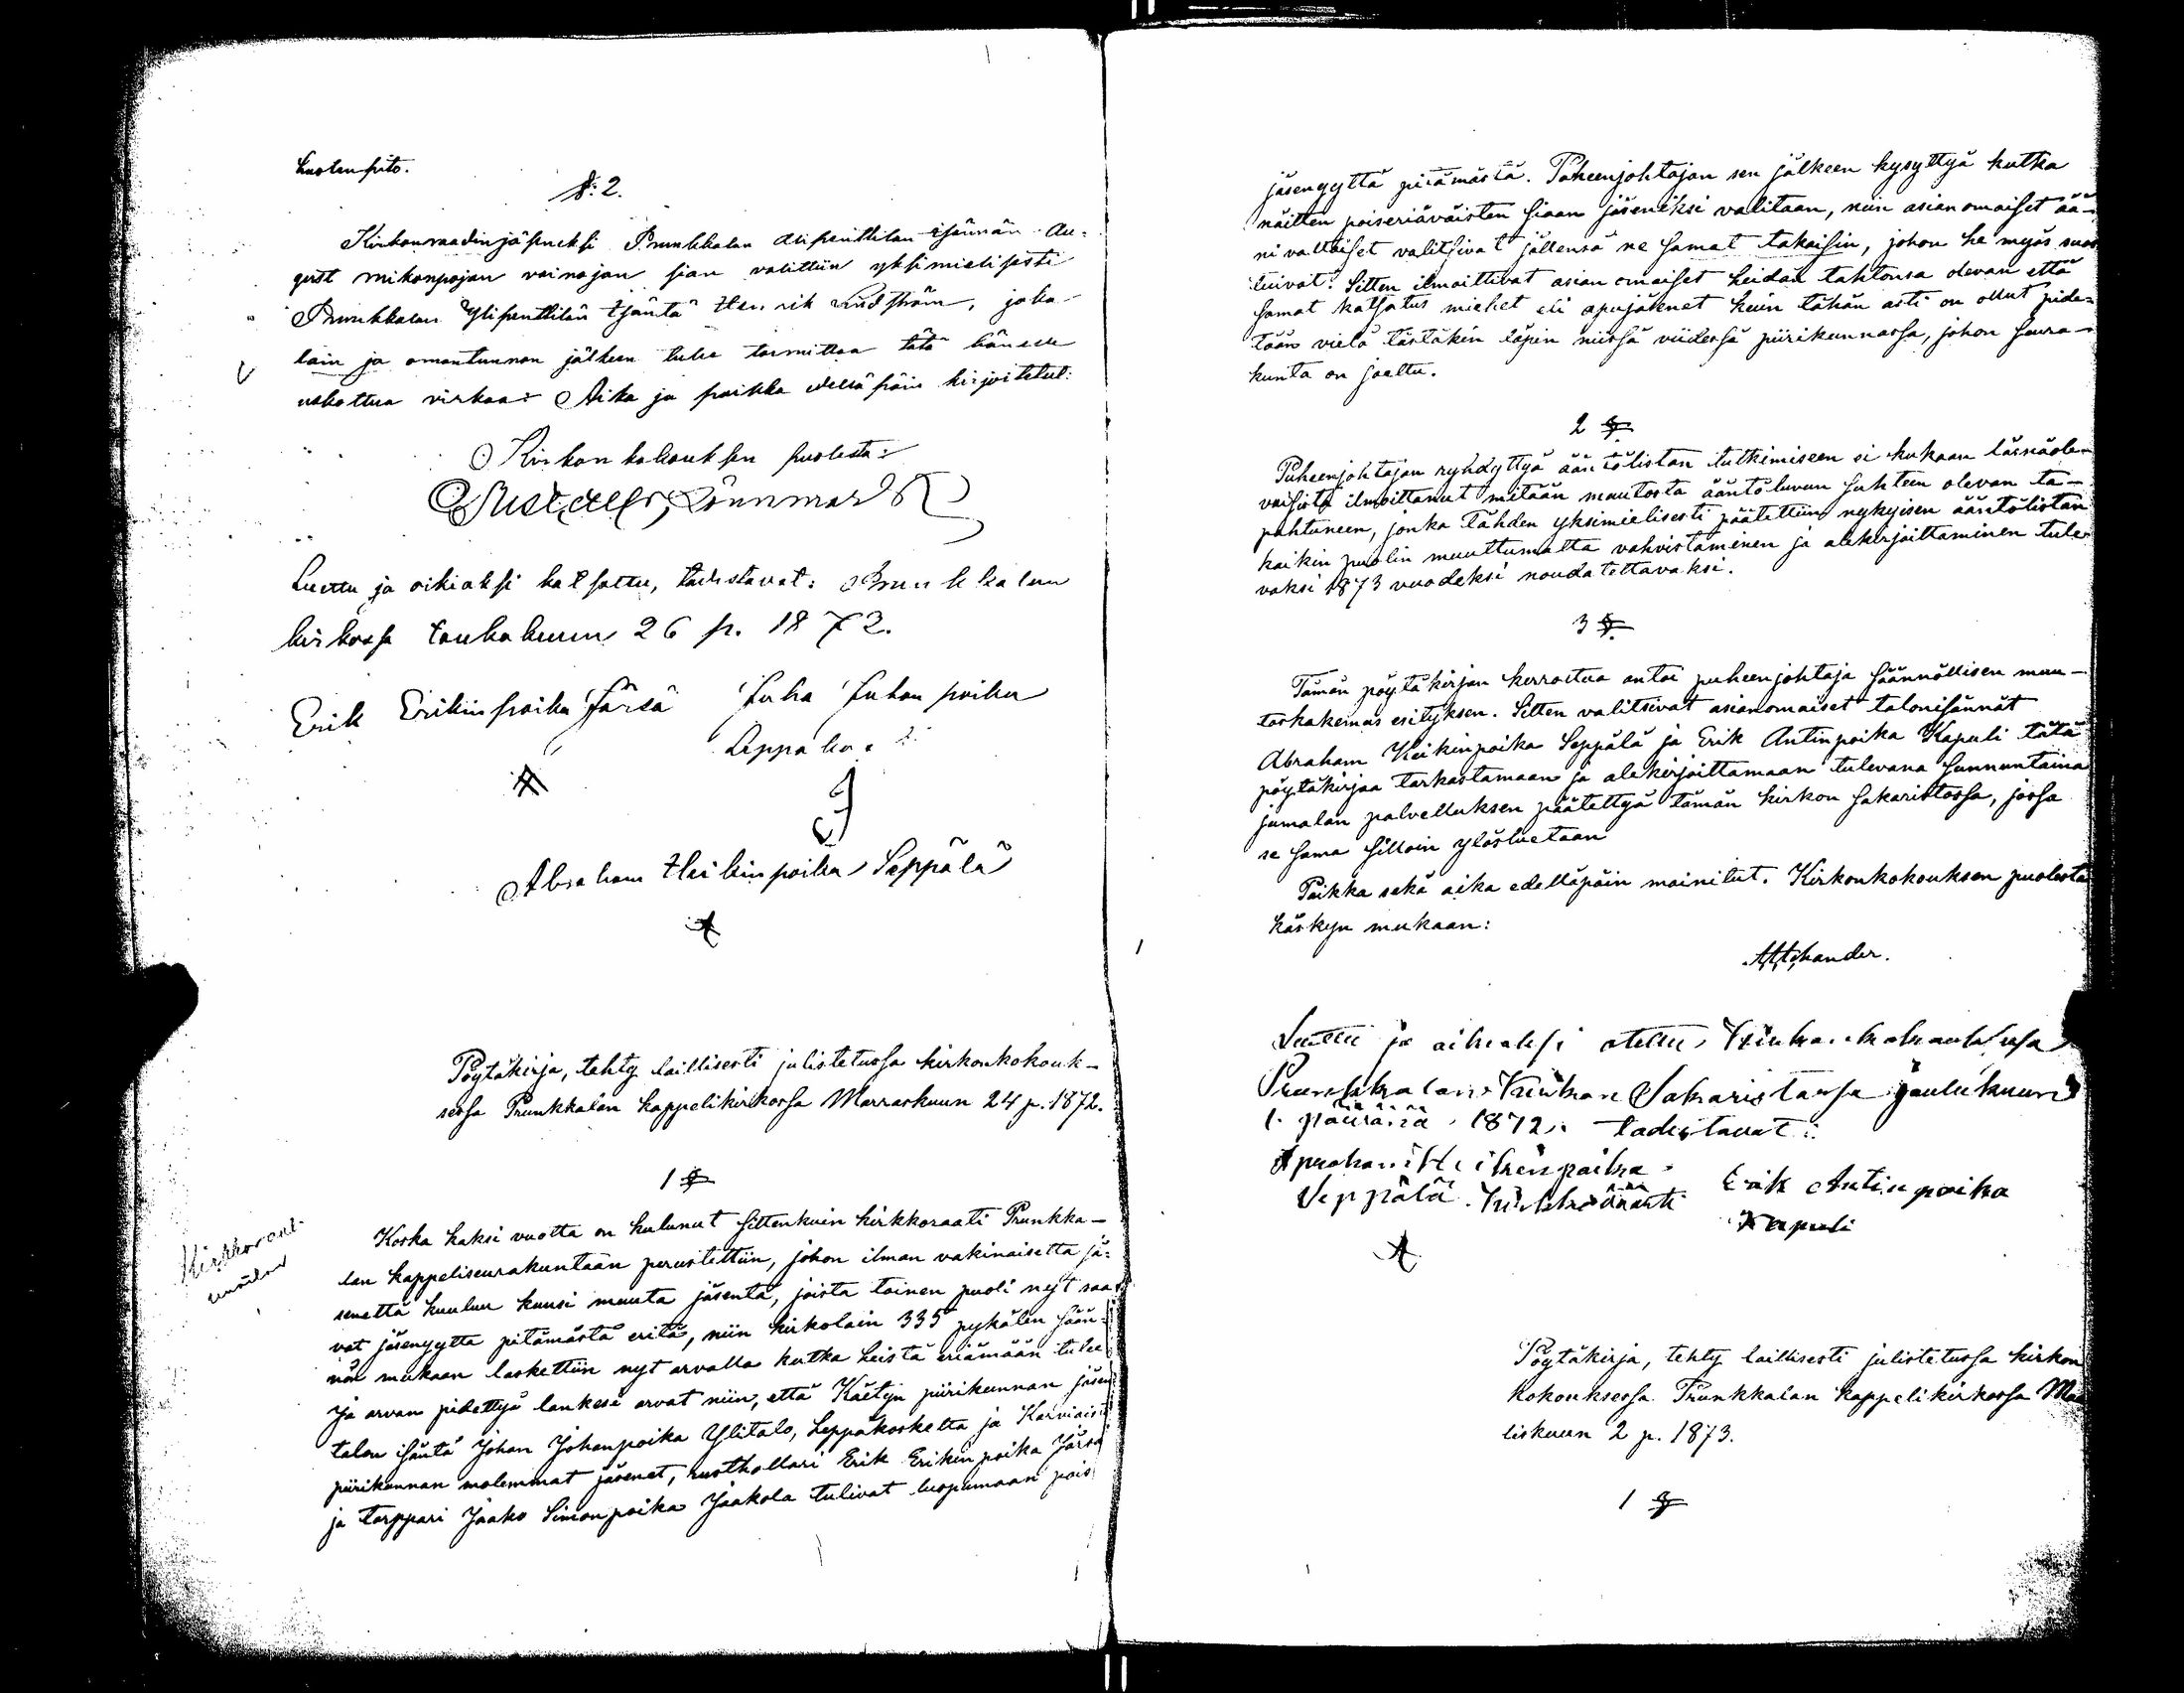 huolenpito.
§: 2.
Kirkonraadin jäseneksi Prunkkalan Alipenttilän isännän Au-
gust Mikonpojan vainajan sian valittiin yksimielisesti
Prunkkalan Ylipenttilän Isäntä Henrik Lindström, joka
lain ja omantunnon jälkeen tulee toimittaa tätä hänelle
uskottua virkaa: Aika ja paikka edelläpäin kirjoitetut:
Kirkonkokouksen puolesta:
Gustaf Lönnmark
Luettu ja oikiaksi katsottu, todistavat: Prunkkalan
kirkossa Toukokuun 26 p. 1872.
Erik Erikinpoika Järsä Juha Juhanpoika
Leppäko
Abraham Heikinpoika Seppälä
Pöytäkirja, tehty laillisesti julistetussa kirkonkokouk-
sessa Prunkkalan kappelikirkossa Marraskuun 24 p. 1872.
1 §
Kirkkoraat.
Koska kaksi vuotta on kulunut sittenkuin kirkkoraati Prunkka-
lan kappeliseurakuntaan perustettiin, johon ilman vakinaisetta jä-
senettä kuuluu kuusi muuta jäsentä, joista toinen puoli nyt saa-
vat jäsenyyttä pitämästä eritä, niin kirkolain 335 pykälän sään-
nön mukaan laskettiin nyt arvalla kutka heistä eriämään tulee
Ja arvan pidettyä lankesi arvat niin, että Käetyn piirikunnan jäsen
talon isäntä Johan Johanpoika Ylitalo, Leppäkoskelta ja Karviaist
piirikunnan molemmat jäsenet, rusthollari Erik Erikinpoika Järsä
ja torppari Jaako Simonpoika Jaakola tulivat luopumaan pois
jäsenyyttä pitämästä. Puheenjohtajan sen jälkeen kysyttyä kutka
näitten poiseriäväisten siaan jäseniksi valitaan, niin asianomaiset ää-
nivaltaiset valitsivat jällensä ne samat takaisin, johon he myös suos
tuivat. Sitten ilmoittivat asianomaiset heidän tahtonsa olevan että
samat katsatus miehet eli apujäsenet kuin tähän asti on ollut pide-
tään vielä tästäkin läpin niissä viidessä piirikunnassa, johon seura-
kunta on jaettu.
2 §
Puheenjohtajan ryhdyttyä ääntölistan tutkimiseen ei kukaan läsnäole-
vaisista ilmoittanut mitään muutosta ääntöluvun suhteen olevan ta-
pahtuneen, jonka tähden yksimielisesti päätettiin nykyisen ääntölistan
kaikin puolin muuttumatta vahvistaminen ja alekirjoittaminen tule-
vaksi 1873 vuodeksi noudatettavaksi.
3 §
Tämän pöytäkirjan kerrottua antoi puheenjohtaja säännöllisen muu-
toshakemus esityksen. Sitten valitsivat asianomaiset talonisännät
Abraham Heikinpoika Seppälä ja Erik Antinpoika Kapuli tätä
pöytäkirjaa tarkastamaan ja alekirjoittamaan tulevana sunnuntaina
jumalan palvelluksen päätettyä tämän kirkon sakaristossa, jossa
se sama silloin ylösluetaan
Paikka sekä aika edelläpäin mainitut. Kirkonkokouksen puolesta
käskyn mukaan:
Luettu ja oikiaksi otettu,
Prunkkalan Kirkon Sakaristossa joulukuun
1. päivänä 1872. todistavat:
Aprahami Heikinpoika
Seppälä. Erik Antinpoika
Kapuli
Pöytäkirja, tehty laillisesti julistetussa kirkon
kokouksessa Prunkkalan kappelikirkossa Maa
liskuun 2 p. 1873.
1 §